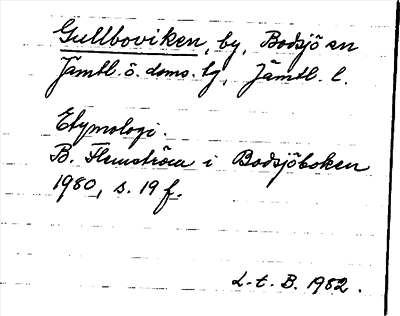 Gullboviken, by, Bodsjö sn
Jämtl. ö. doms. tg, Jämtl. l.
Etymologi.
B. Flemström i Bodsjöboken
1980, s. 19 f.
L.t.B. 1982.